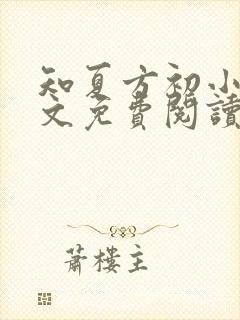 知夏方初小
文免費閱讀
蕭樓主